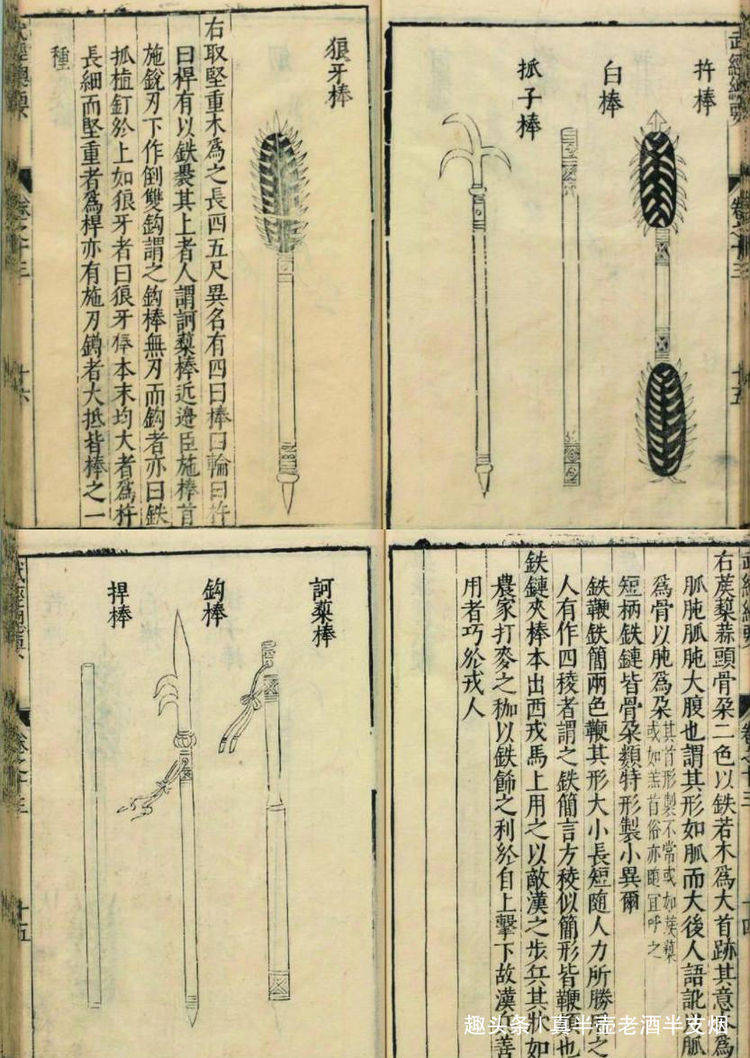 武經總要
卷之十三
十五
杵棒
白棒
抓子棒
狼牙棒
右取堅重木爲之長四五尺異名有四曰棒曰輪曰杵
曰桿有以鉄裹其上者人謂訶藜棒近邊臣施棒首
施銳刃下作倒雙鈎謂之鈎棒無刃而鈎者亦曰鉄
抓植釘於上如狼牙者曰狼牙棒本末均大者爲杵
長細而堅重者爲桿亦有施刃鐏者大抵皆棒之一
種
武經總要
卷之十三
十六
武經總要
卷之十三
十四
右蒺藜蒜頭骨朶二色以鉄若木爲大首跡其意本爲
胍肫胍肫大腹也謂其形如胍而大後人語訛以胍
爲骨以肫爲朶
其首形製不常或如蒺藜
或如羔首俗亦隨宜呼之
短柄鉄鏈皆骨朶類特形製小異爾
鉄鞭鉄簡兩色鞭其形大小長短隨人力所勝用之
人有作四稜者謂之鉄簡言方稜似簡形皆鞭類也
鉄鏈夾棒本出西戎馬上用之以敵漢之步兵其狀如
農家打麥之枷以鉄飾之利於自上擊下故漢兵善
用者巧於戎人
訶藜棒
鈎棒
捍棒
武經總要
卷之十三
十五
趣头条 / 真半壶老酒半支烟